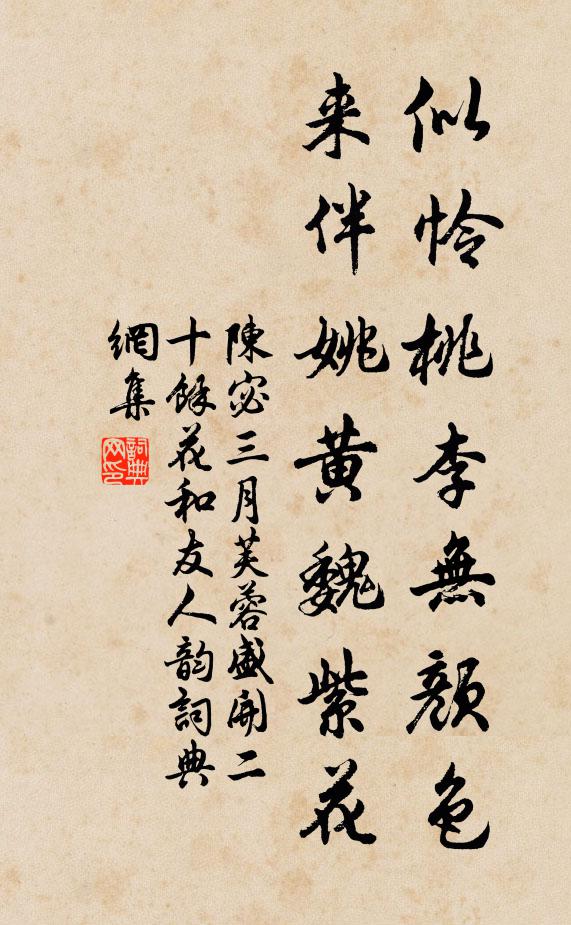 似怜桃李無顏色
来伴姚黄魏紫花
陳宓三月芙蓉盛開二
十餘花和友人韵詞典
網集
詞典
网印